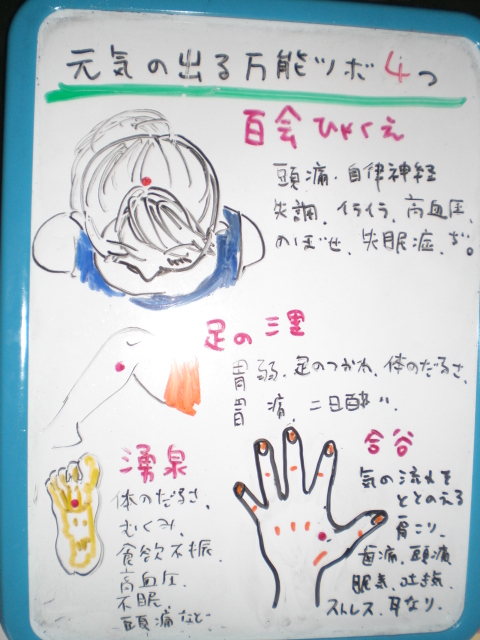 元気の出る万能ツボ4つ
百会 ひゃくえ
頭痛、自律神経
失調、イライラ、高血圧、
のぼせ、失眠症、ぢ。
足の三里
胃弱、足のつかれ、体のだるさ、
胃痛、二日酔い
湧泉
体のだるさ、
むくみ、
食欲不振、
高血圧、
不眠、
頭痛など
合谷
気の流れを
ととのえる
肩こり、
歯痛、頭痛
眠気、吐き気、
ストレス、耳なり、